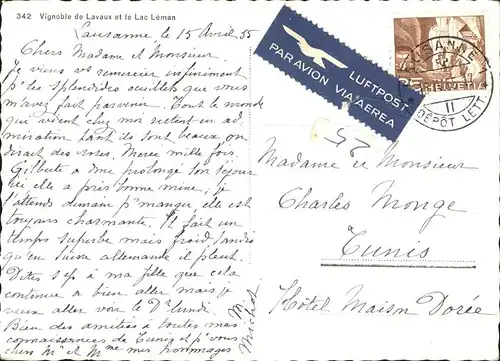 342 Vignoble de Lavaux et le Lac Léman
Lausanne le 15 Avril 55
Chers Madame et Monsieur
Je viens vs remercier infiniment
pr les splendides oeuillets que vous
m'avez fait parvenir. Tout le monde
que vient chez moi restent en ad
miration tant ils sont beaux on
dirait des roses. Merci mille fois.
Gilberte a due prolongé son séjour
ici elle a pris bonne mine; je
l'attends demain pr manger, elle est
toujours charmante. Il fait un
temps superbe mais froid, tandis
qu'en Suisse allemande il pleut.
Dites svp à ma fille que cela
continue a bien aller mais je
veux aller voir le Dr lundi
Bien des amitiées à toutes mes
connaissances de Tunis et pr vous
chers Mr et Mme mes hommages
M. Michot
LUFTPOST
PAR AVION VIA AEREA
LAUSANNE 1
II
DÉPÔT LETT.
25 HELVETIA
25
Madame et Monsieur
Charles Monge
Tunis
Hôtel Maison Dorée